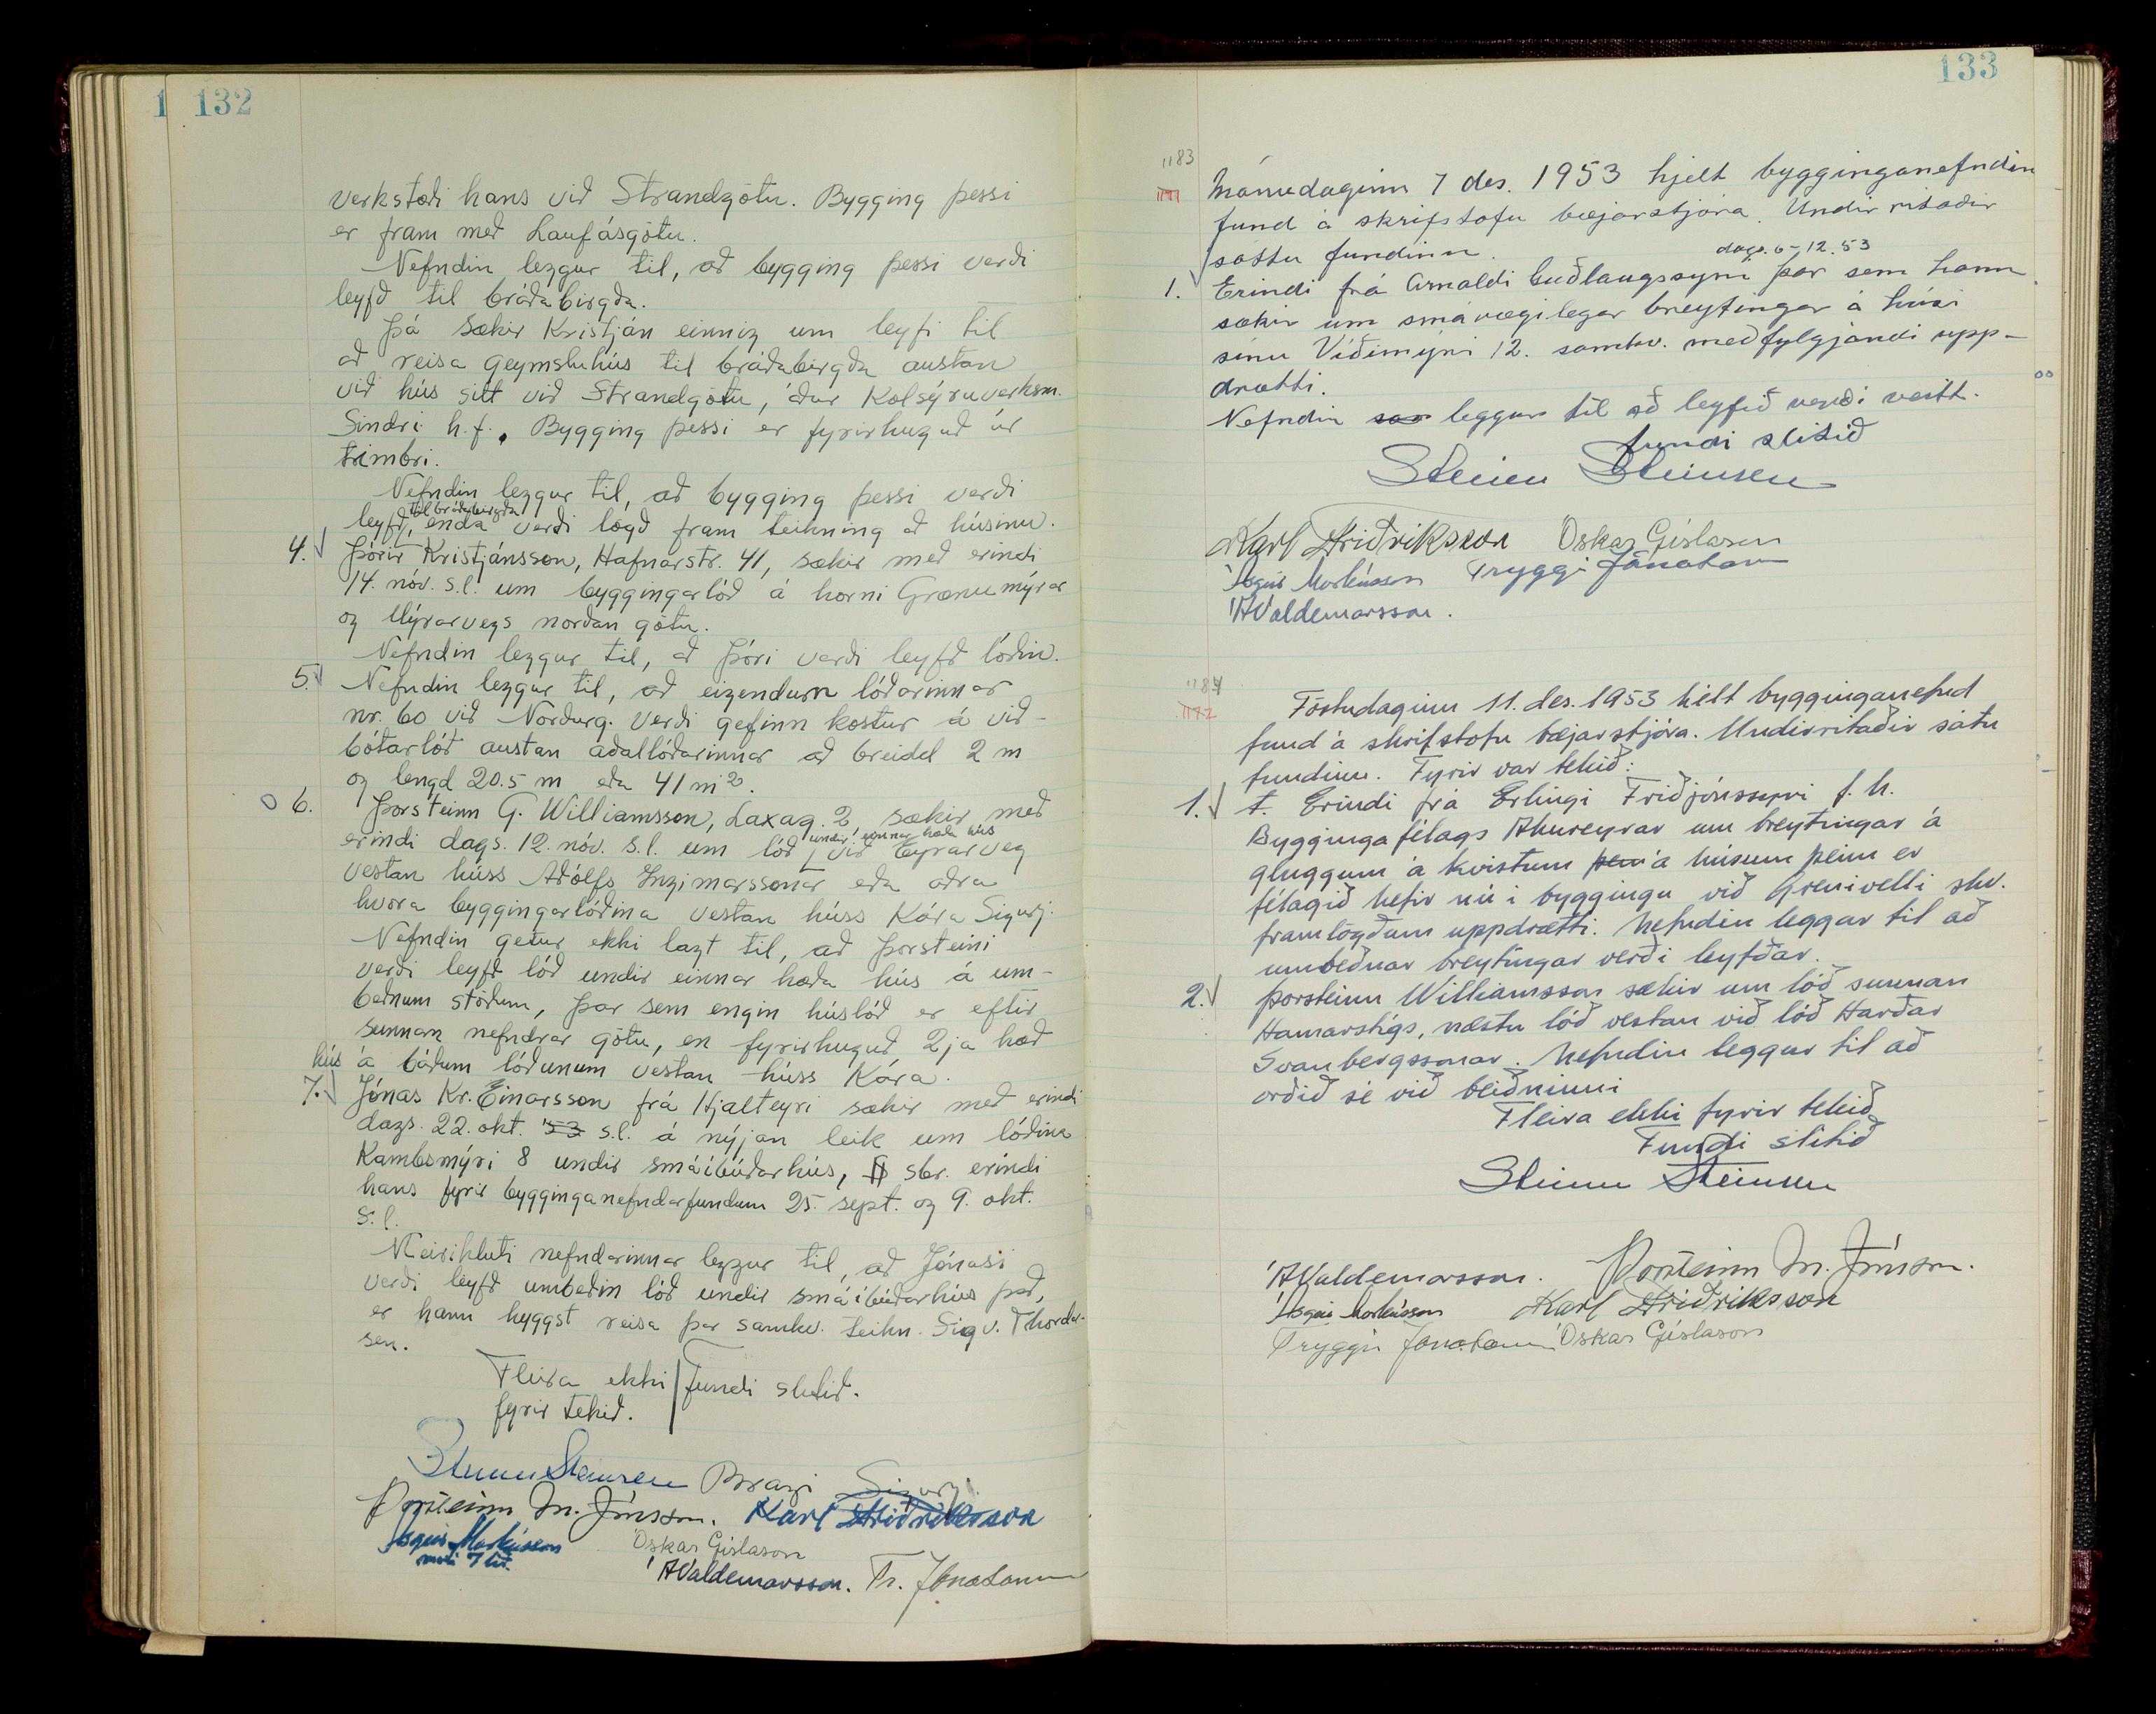 132
verkstæði hans við Strandgötu. Bygging þessi
er fram með Laufásgötu.
Nefndin leggur til, að bygging þessi verði
leyfð til bráðabirgða.
Þá sækir Kristján einnig um leyfi til
að reisa geymsluhús til bráðabirgða austan
við hús sitt við Strandgötu, áður Kolsýruverksm.
Sindri h.f. Bygging þessi er fyrirhuguð úr
timbri.
Nefndin leggur til, að bygging þessi verði
til bráðabirgða
leyfð, enda verði lögð fram teikning að húsinu.
4. Þórir Kristjánsson, Hafnarstr. 41, sækir með erindi
14. nóv. s.l. um byggingarlóð á horni Grænumýrar
og Mýrarvegs norðan götu.
Nefndin leggur til, að Þóri verði leyfð lóðin.
5. Nefndin leggur til, að eigendum lóðarinnar
nr. 60 við Norðurg. verði gefinn kostur á við-
bótarlóð austan aðallóðarinnar að breidd 2 m
og lengd 20.5 m eða 41 m².
6. Þorsteinn G. Williamsson, Laxag. 2, sækir með
undir einnar hæða hús
erindi dags. 12. nóv. s.l. um lóð við Eyrarveg
vestan húss Aðólfs Ingimarssonar eða aðra
hvora byggingarlóðina vestan húss Kára Sigurj.
Nefndin getur ekki lagt til, að Þorsteini
verði leyfð lóð undir einnar hæða hús á um-
beðnum stöðum, þar sem engin húslóð er eftir
sunnan nefndrar götu, en fyrirhuguð 2ja hæð
hús á báðum lóðunum vestan húss Kára.
7. Jónas Kr. Einarsson frá Hjalteyri sækir með erindi
dags. 22. okt. '53 s.l. á nýjan leik um lóðina
Kambsmýri 8 undir smáíbúðarhús, sbr. erindi
hans fyrir bygginganefndarfundum 25. sept. og 9. okt.
s.l.
Meirihluti nefndarinnar leggur til, að Jónasi
verði leyfð umbeðin lóð undir smáíbúðarhús það,
er hann hyggst reisa þar samkv. teikn. Sigv. Thordar-
sen.
Fleira ekki fundi slitið.
fyrir tekið.
Steinn Steinsen Bragi Sigurj.
Þorsteinn M. Jónsson. Karl Friðriksson
Ásgeir Markússon Óskar Gíslason
móti 7 lið.
ÁValdemarsson. Tr. Jónatanss
133
1183
1171
Mánudaginn 7 des. 1953 hjelt bygginganefndin
fund á skrifstofu bæjarstjóra. Undirritaðir
sóttu fundinn.
dags. 6-12.53
1. Erindi frá Arnaldi Guðlaugssyni þar sem hann
sækir um smávægilegar breytingar á húsi
sínu Víðimýri 12. samkv. meðfylgjandi upp-
drætti.
Nefndin leggur til að leyfið verði veitt.
fundi slitið
Steinn Steinsen
Karl Friðriksson Óskar Gíslason
Ásgeir Markússon Tryggvi Jónatanss
ÁValdemarsson.
1184
1172
Föstudaginn 11. des. 1953 hélt bygginganefnd
fund á skrifstofu bæjarstjóra. Undirritaðir sátu
fundinn. Fyrir var tekið:
1. 1. Erindi frá Erlingi Friðjónssyni f.h.
Byggingafélags Akureyrar um breytingar á
gluggum á kvistum þeim á húsum þeim er
félagið hefir nú í byggingu við Grenivelli skv.
framlögðum uppdrætti. Nefndin leggur til að
umbeðnar breytingar verði leyfðar.
2. Þorsteinn Williamsson sækir um lóð sunnan
Hamarstígs, næstu lóð vestan við lóð Harðar
Svanbergssonar. Nefndin leggur til að
orðið sé við beiðninni
Fleira ekki fyrir tekið
Fundi slitið
Steinn Steinsen
ÁValdemarsson. Þorsteinn M. Jónsson.
Ásgeir Markússon Karl Friðriksson
Tryggvi Jónatanss Óskar Gíslason